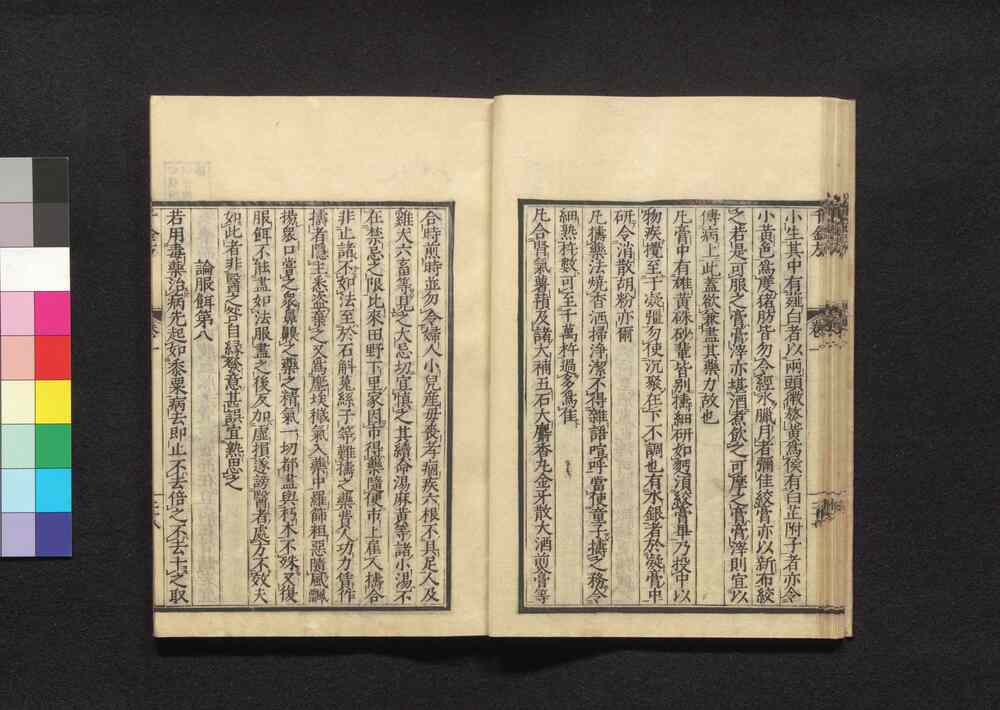 小生其中有薤白者以兩頭微𤍜黃爲候有白芷附子者亦令
小黃色爲度猪肪皆勿令經水臘月者彌佳絞膏亦以新布絞
之若是可服之膏膏滓亦堪酒煮飲之可摩之膏膏滓則宜以
傅病上此蓋欲兼盡其藥力故也
凡膏中有雄黃硃砂輩皆別擣細研如麪須絞膏畢乃投中以
物疾攪至于凝彊勿使沉聚在下不調也有水銀者於凝膏中
研令消散胡粉亦爾
凡擣藥法燒香洒掃淨潔不得雜語喧呼當使童子擣之務令
細熟杵數可至千萬杵過多爲佳
凡合腎氣薯蕷及諸大補五石大麝香丸金牙散大酒煎膏等
合時煎時並勿令婦人小兒產母喪孝痼疾六根不具足人及
雞犬六畜等見之大忌切宜慎之其續命湯麻黃等諸小湯不
在禁忌之限比來田野下里家因市得藥隨便市上雇人擣合
非止諸不如法至於石斛菟絲子等難擣之藥費人功力賃作
擣者隱主悉盜棄之又爲塵埃穢氣入藥中羅篩粗惡隨風飄
揚衆口嘗之衆鼻齅之藥之精氣一切都盡與朽木不殊又復
服餌不能盡如法服盡之後反加虛損遂謗醫者處方不效夫
如此者非醫之咎自緣發意甚誤宜熟思之
論服餌第八
若用毒藥治病先起如黍粟病去即止不去倍之不去十之取